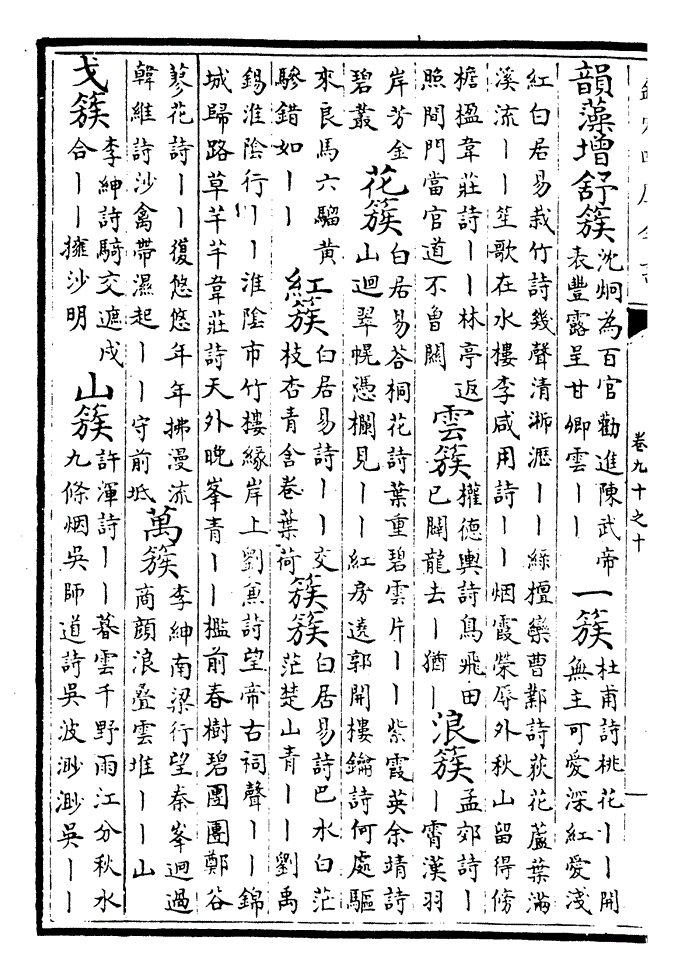 卷九十之十
韻藻增舒簇
沈炯為百官勸進陳武帝
表豐露呈甘卿雲丨丨
一簇
杜甫詩桃花丨丨開
無主可愛深紅愛淺
紅白居易栽竹詩幾聲清淅瀝丨丨綠檀欒曹鄴詩荻花蘆葉滿
溪流丨丨笙歌在水樓李咸用詩丨丨烟霞榮辱外秋山留得傍
檐楹韋莊詩丨丨林亭返
照間門當官道不曾關
雲簇
權德輿詩鳥飛田
已闢龍去丨猶丨
浪簇
孟郊詩丨
丨霄漢羽
岸芳金
碧叢
花簇
白居易荅桐花詩葉重碧雲片丨丨紫霞英余靖詩
山迴翠幌憑欄見丨丨紅房遶郭開樓鑰詩何處驅
來良馬六騮黄
驂錯如丨丨
紅簇
白居易詩丨丨交
枝杏青含卷葉荷
簇簇
白居易詩巴水白茫
茫楚山青丨丨劉禹
錫淮陰行丨丨淮陰市竹樓緣岸上劉兼詩望帝古祠聲丨丨錦
城歸路草芊芊韋莊詩天外晚峯青丨丨檻前春樹碧團團鄭谷
蓼花詩丨丨復悠悠年年拂漫流
韓維詩沙禽帶濕起丨丨守前坻
萬簇
李紳南梁行望秦峯迴過
商顔浪叠雲堆丨丨山
戈簇
李紳詩騎交遮戍
合丨丨擁沙明
山簇
許渾詩丨丨暮雲千野雨江分秋水
九條烟吳師道詩吳波渺渺吳丨丨